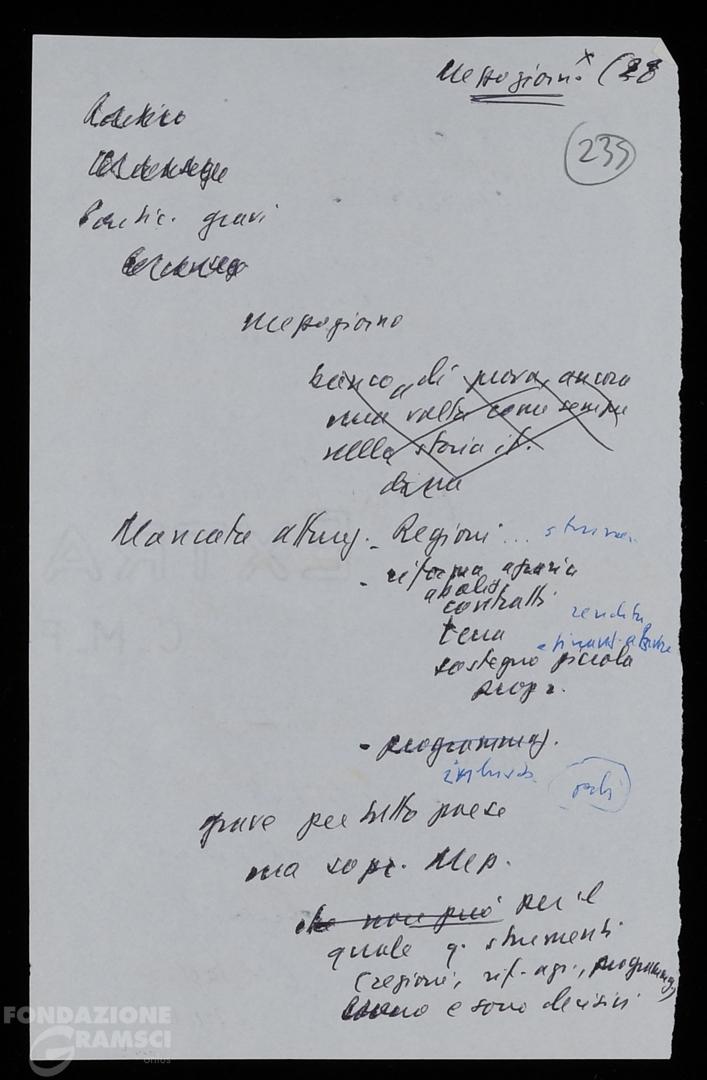 Mezzogiorno x (28
239
Partic. gravi
Mezzogiorno
banco di prova, ancora
una volta come sempre
nella storia it.
Mancata attuaz. - Regioni ...
- riforma agraria
aboliz
contratti
rendita
terra
sostegno piccola
propr.
- programmaz.
grave per tutto paese
ma sopr. Mezz.
che non può per il
quale q. strumenti
(regioni, rif. agr., programmaz)
e sono decisivi
FONDAZIONE
GRAMSCI
onlus